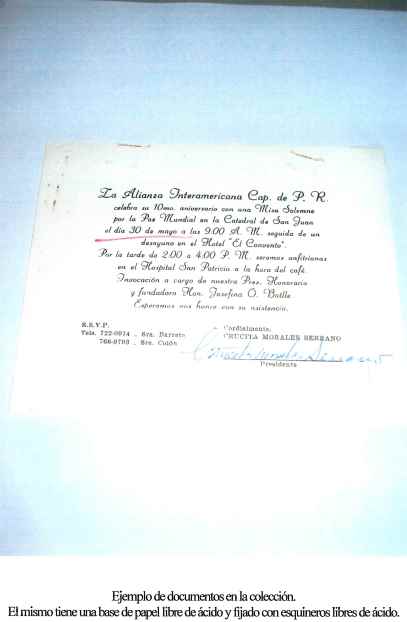 La Alianza Interamericana Cap. de P. R.
celebra su 10mo. aniversario con una Misa Solemne
por la Paz Mundial en la Catedral de San Juan
el día 30 de mayo a las 9:00 A. M. seguida de un
desayuno en el Hotel "El Convento".
Por la tarde de 2:00 a 4:00 P. M. seremos anfitrionas
en el Hospital San Patricio a la hora del café.
Invocación a cargo de nuestra Pres. Honorario
y fundadora Hon. Josefina O. Batlle
Esperamos nos honre con su asistencia.
R.S.V.P.
Tels. 722-0974 - Sra. Barreto
766-9793 - Sra. Colón
Cordialmente,
CRUCITA MORALES SERRANO
Crucita Morales Serrano
Presidenta
Ejemplo de documentos en la colección.
El mismo tiene una base de papel libre de ácido y fijado con esquineros libres de ácido.